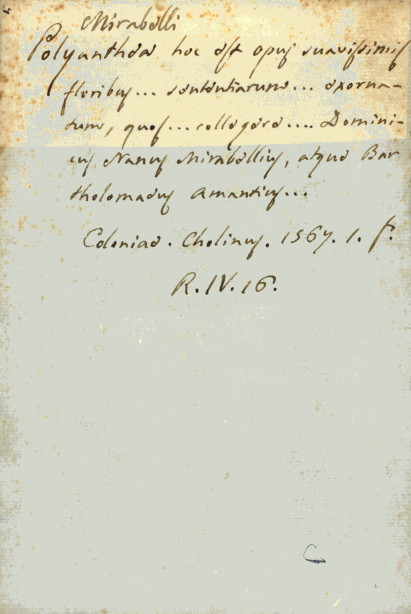 Mirabelli
Polyanthea hoc est opus suavissimis
floribus... sententiarum... exorna-
tum, quos... collegere.... Domini-
cus Nanus Mirabellius, atque Bar
tholomaeus Amantius...
Coloniae. Cholinus. 1567. 1. f.
R. IV. 16.